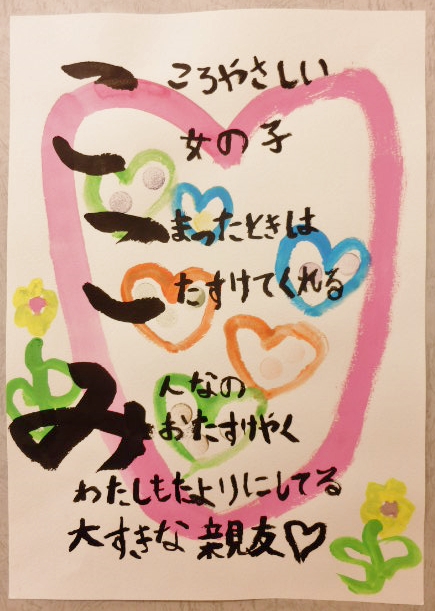 こころやさしい
女の子
こまったときは
たすけてくれる
みんなの
おたすけやく
わたしもたよりにしてる
大すきな親友♡